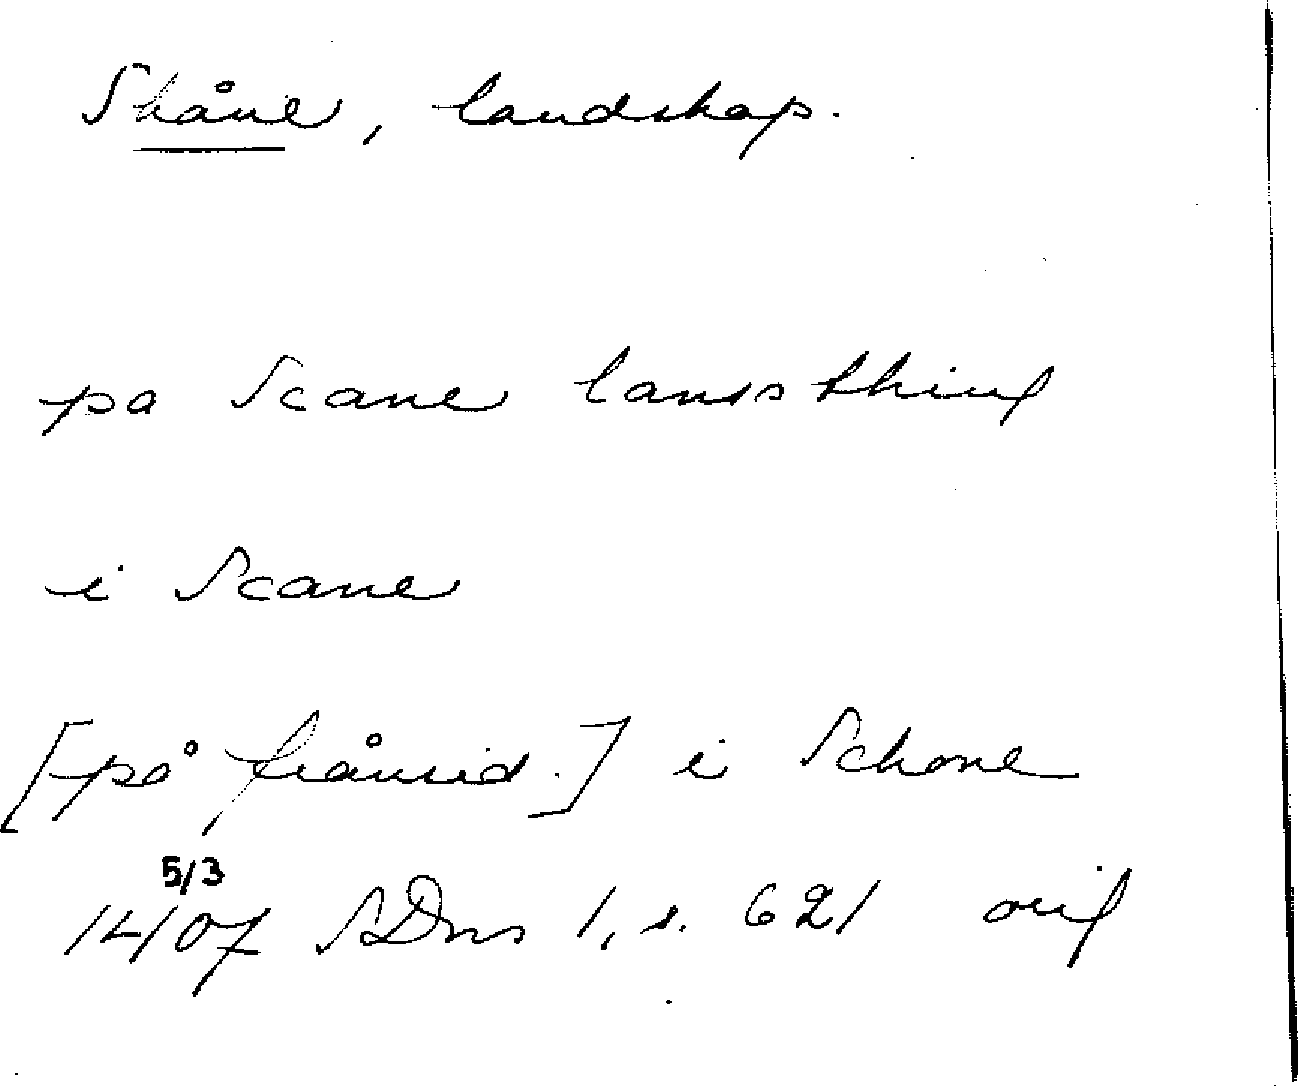 Skåne, landskap.
pa Scane lanssthing
i Scane
[på frånsid.] i Schone
5/3
1407 SDns 1, s. 621 orig